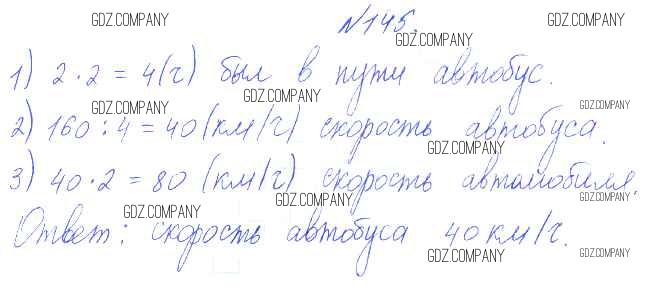 GDZ.COMPANY №145. GDZ.COMPANY
GDZ.COMPANY
1) 2·2=4(ч) был в пути автобус.
GDZ.COMPANY GDZ.COMPANY GDZ.COMPANY
2) 160:4=40(км/ч) скорость автобуса.
GDZ.COMPANY GDZ.COMPANY
3) 40·2=80 (км/ч) скорость автомобиля.
GDZ.COMPANY GDZ.COMPANY GDZ.COMPANY
Ответ: скорость автобуса 40 км/ч.
GDZ.COMPANY GDZ.COMPANY